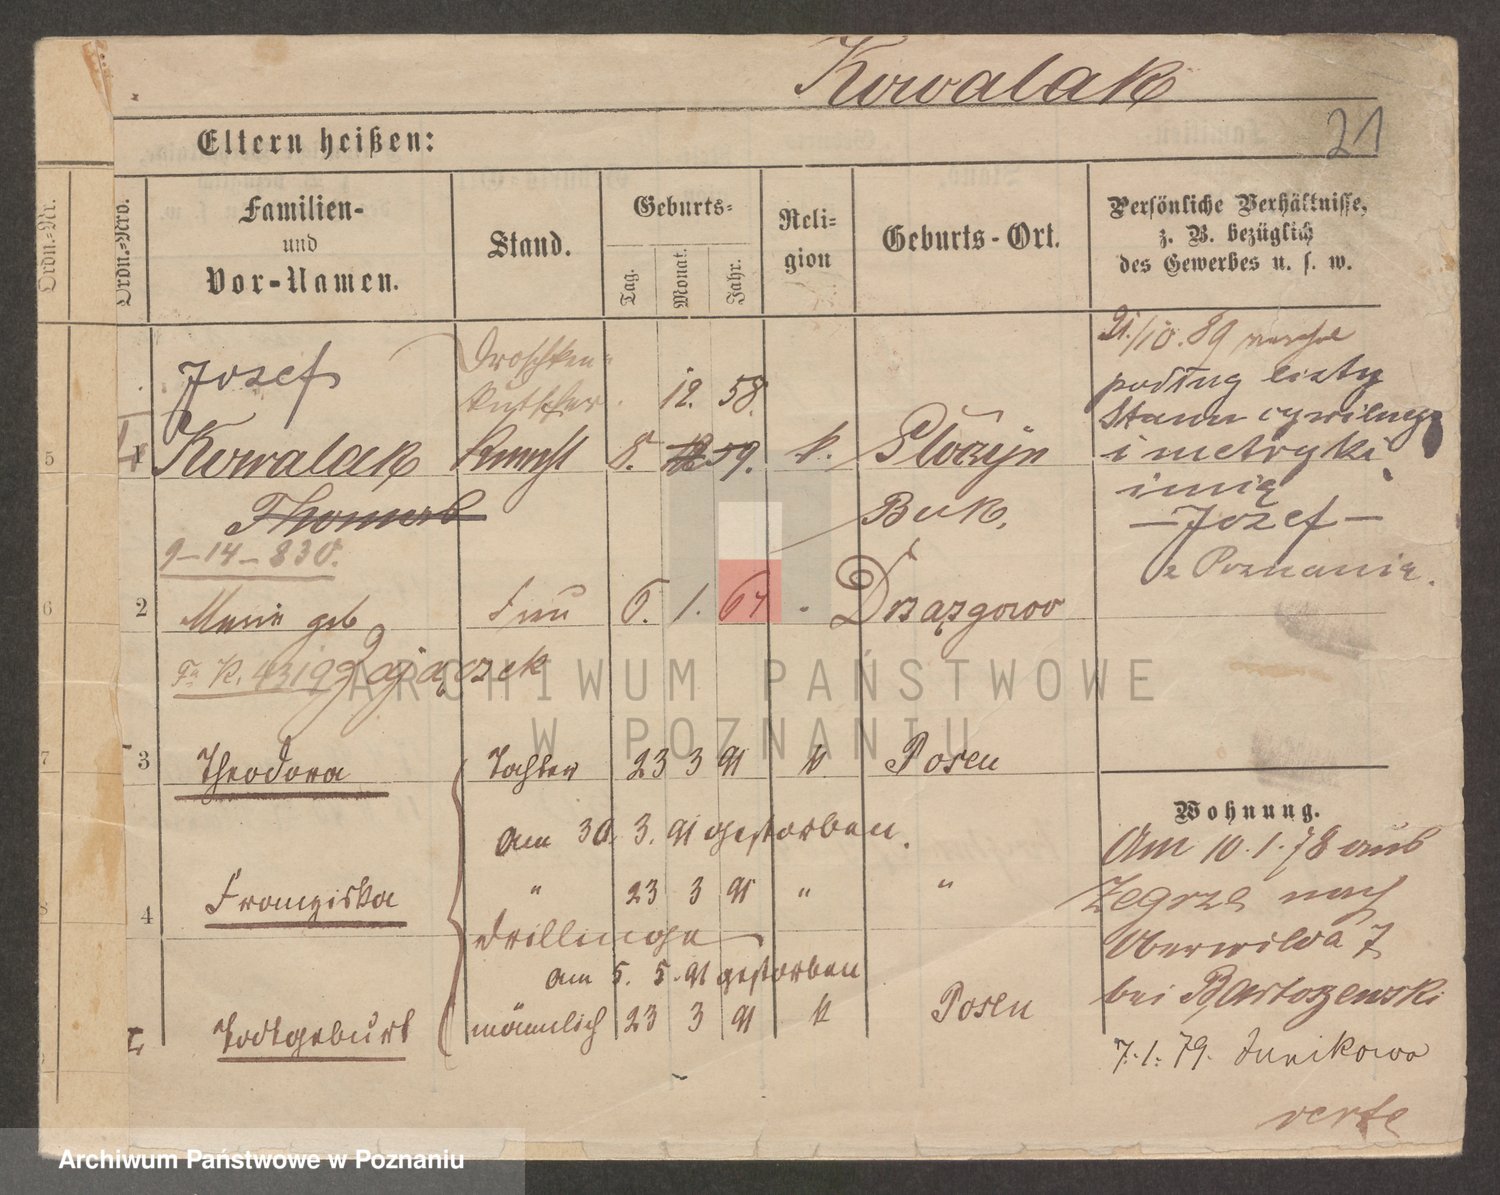 Kowalak
21
Eltern heißen:
Ordn.=Nr.
Ordn.=Nro.
Familien-
und
Vor-Namen.
Stand.
Geburts=
Tag.
Monat.
Jahr.
Reli=
gion
Geburts-Ort.
Persönliche Verhältnisse,
z. B. bezüglich
des Gewerbes u. s. w.
21./10. 89
podług listy
Stanu cywilnego
i metryki
imię
—Józef—
z Poznania.
Josef
Droschken=
kutscher.
12. 58.
5
1
Kowalak
Knecht
8. 12 59. k.
Thomas
Buk.
9-14-830.
6
2
Marie geb
Frau
6. 1. 67
Drzązgowo
Zajączek
7
3
Theodora
Tochter
23 3 91
k
Posen
am 30. 3. 91 gestorben.
8
4
Franziska
"
23 3 91
"
"
Drillinge
am 5. 5. 91 gestorben
Todtgeburt
männlich
23 3 91
k
Posen
Wohnung.
Am 10.1.78 aus
Zegrze nach
Oberwilda 7
bei Bartoszewski
7.1.79. Junikowo
verte
ARCHIWUM PAŃSTWOWE
W POZNANIU
Archiwum Państwowe w Poznaniu